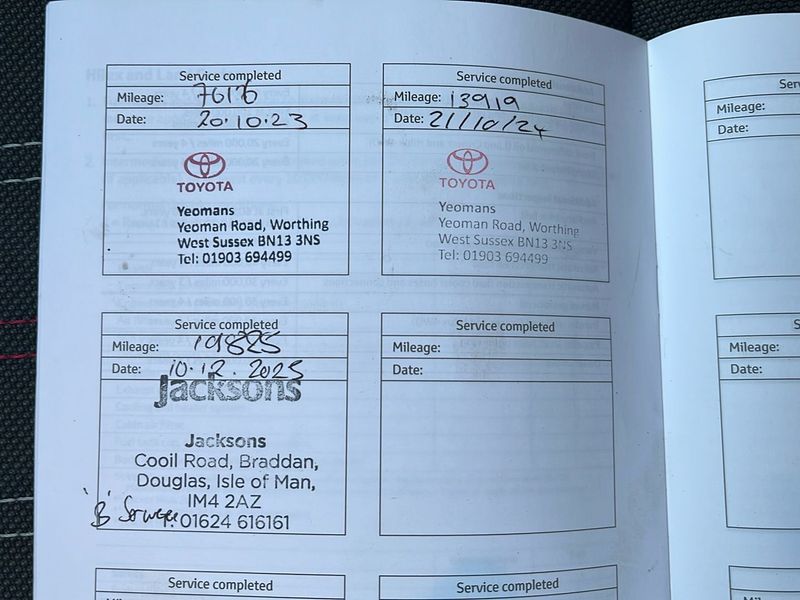 Service completed
Mileage: 76176
Date: 20.10.23
TOYOTA
Yeomans
Yeoman Road, Worthing
West Sussex BN13 3NS
Tel: 01903 694499
Service completed
Mileage: 13919
Date: 21/10/24
TOYOTA
Yeomans
Yeoman Road, Worthing
West Sussex BN13 3NS
Tel: 01903 694499
Service completed
Mileage: 19825
Date: 10.12.2025
Jacksons
Jacksons
Cooil Road, Braddan,
Douglas, Isle of Man,
IM4 2AZ
'B' Service 01624 616161
Service completed
Mileage:
Date:
Mileage:
Date:
Mileage:
Date:
Service completed
Service completed